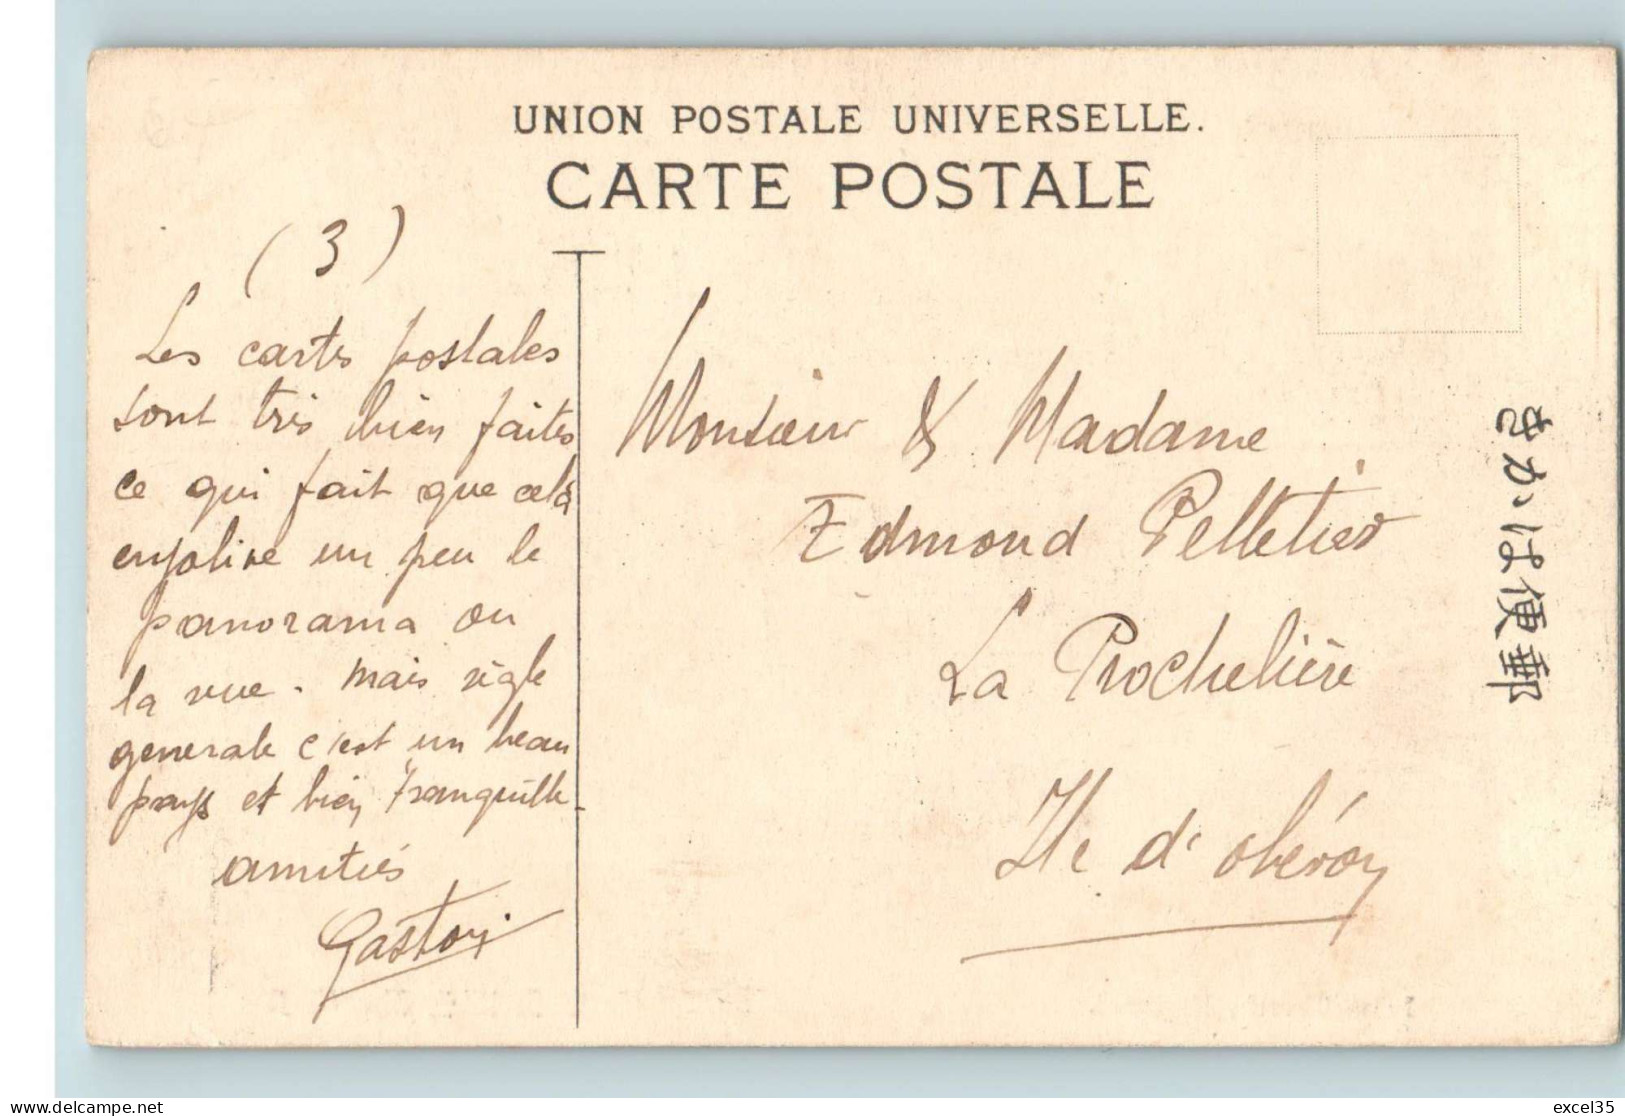 UNION POSTALE UNIVERSELLE.
CARTE POSTALE
(3)
Les cartes postales
sont très bien faites
ce qui fait que celà
enjolive un peu le
panorama ou
la vue. mais règle
generale c'est un beau
pays et bien tranquille
amitiés
Gaston
Monsieur & Madame
Edmond Pelletier
La Rochelière
Ile d'oléron
きかは便郵
delcampe.net
excel35